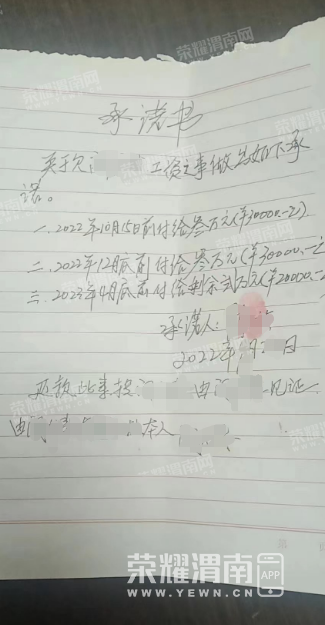 荣耀渭南网
承诺书
关于欠 工资之事做出如下承
诺。
一.2022年10月15日前付给叁万元(¥30000.-元).
二.2022年12月底前付给叁万元(¥30000.-元
三.2023年4月底前付给剩余贰万元(¥20000.-
承诺人:
2022年 月 日
还款此事按 由 见证.
由 本人
荣耀渭南 APP
WWW.YEWN.CN